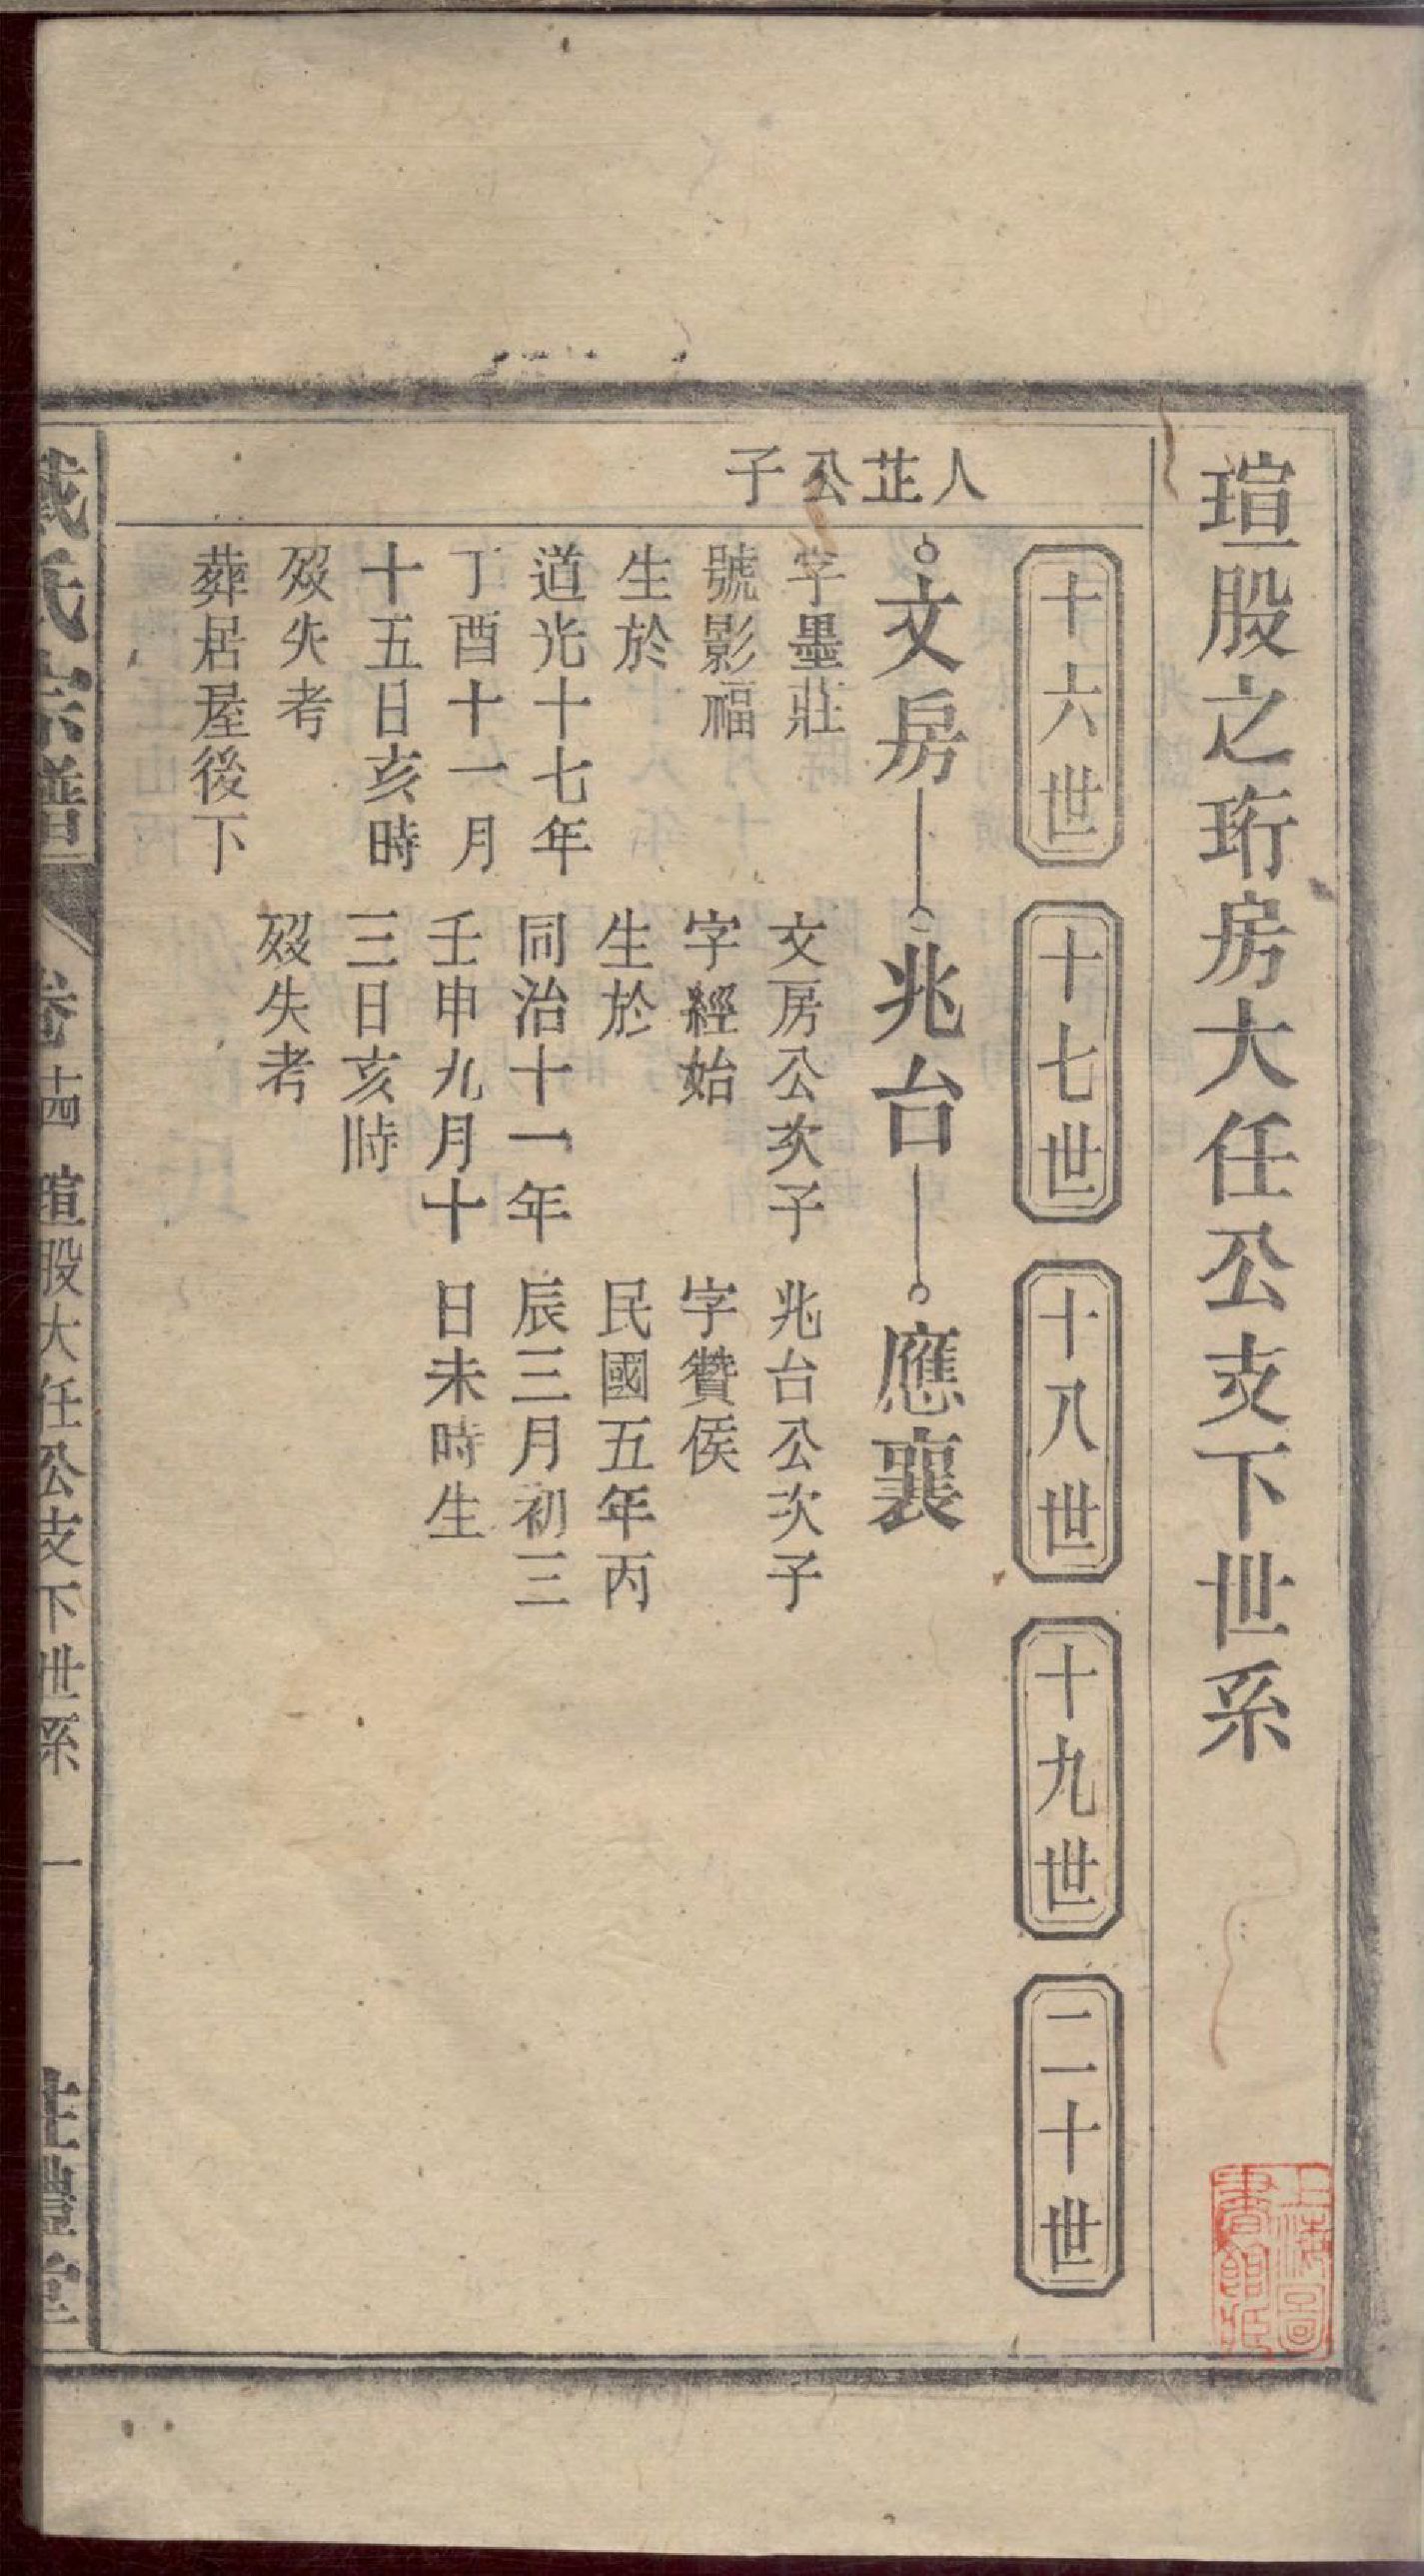 瑄股之珩房大任公支下世系
十六世
十七世
十八世
十九世
二十世
人芷公子
文房
兆台
應襄
字墨莊
號影福
生於
道光十七年
丁酉十一月
十五日亥時
歿失考
葬居屋後下
文房公次子
字經始
生於
同治十一年
壬申九月十
三日亥時
歿失考
兆台公次子
字贊侯
民國五年丙
辰三月初三
日未時生
氏宗譜
卷十四
瑄股大任公支下世系
一
禮堂
上海圖
書館藏